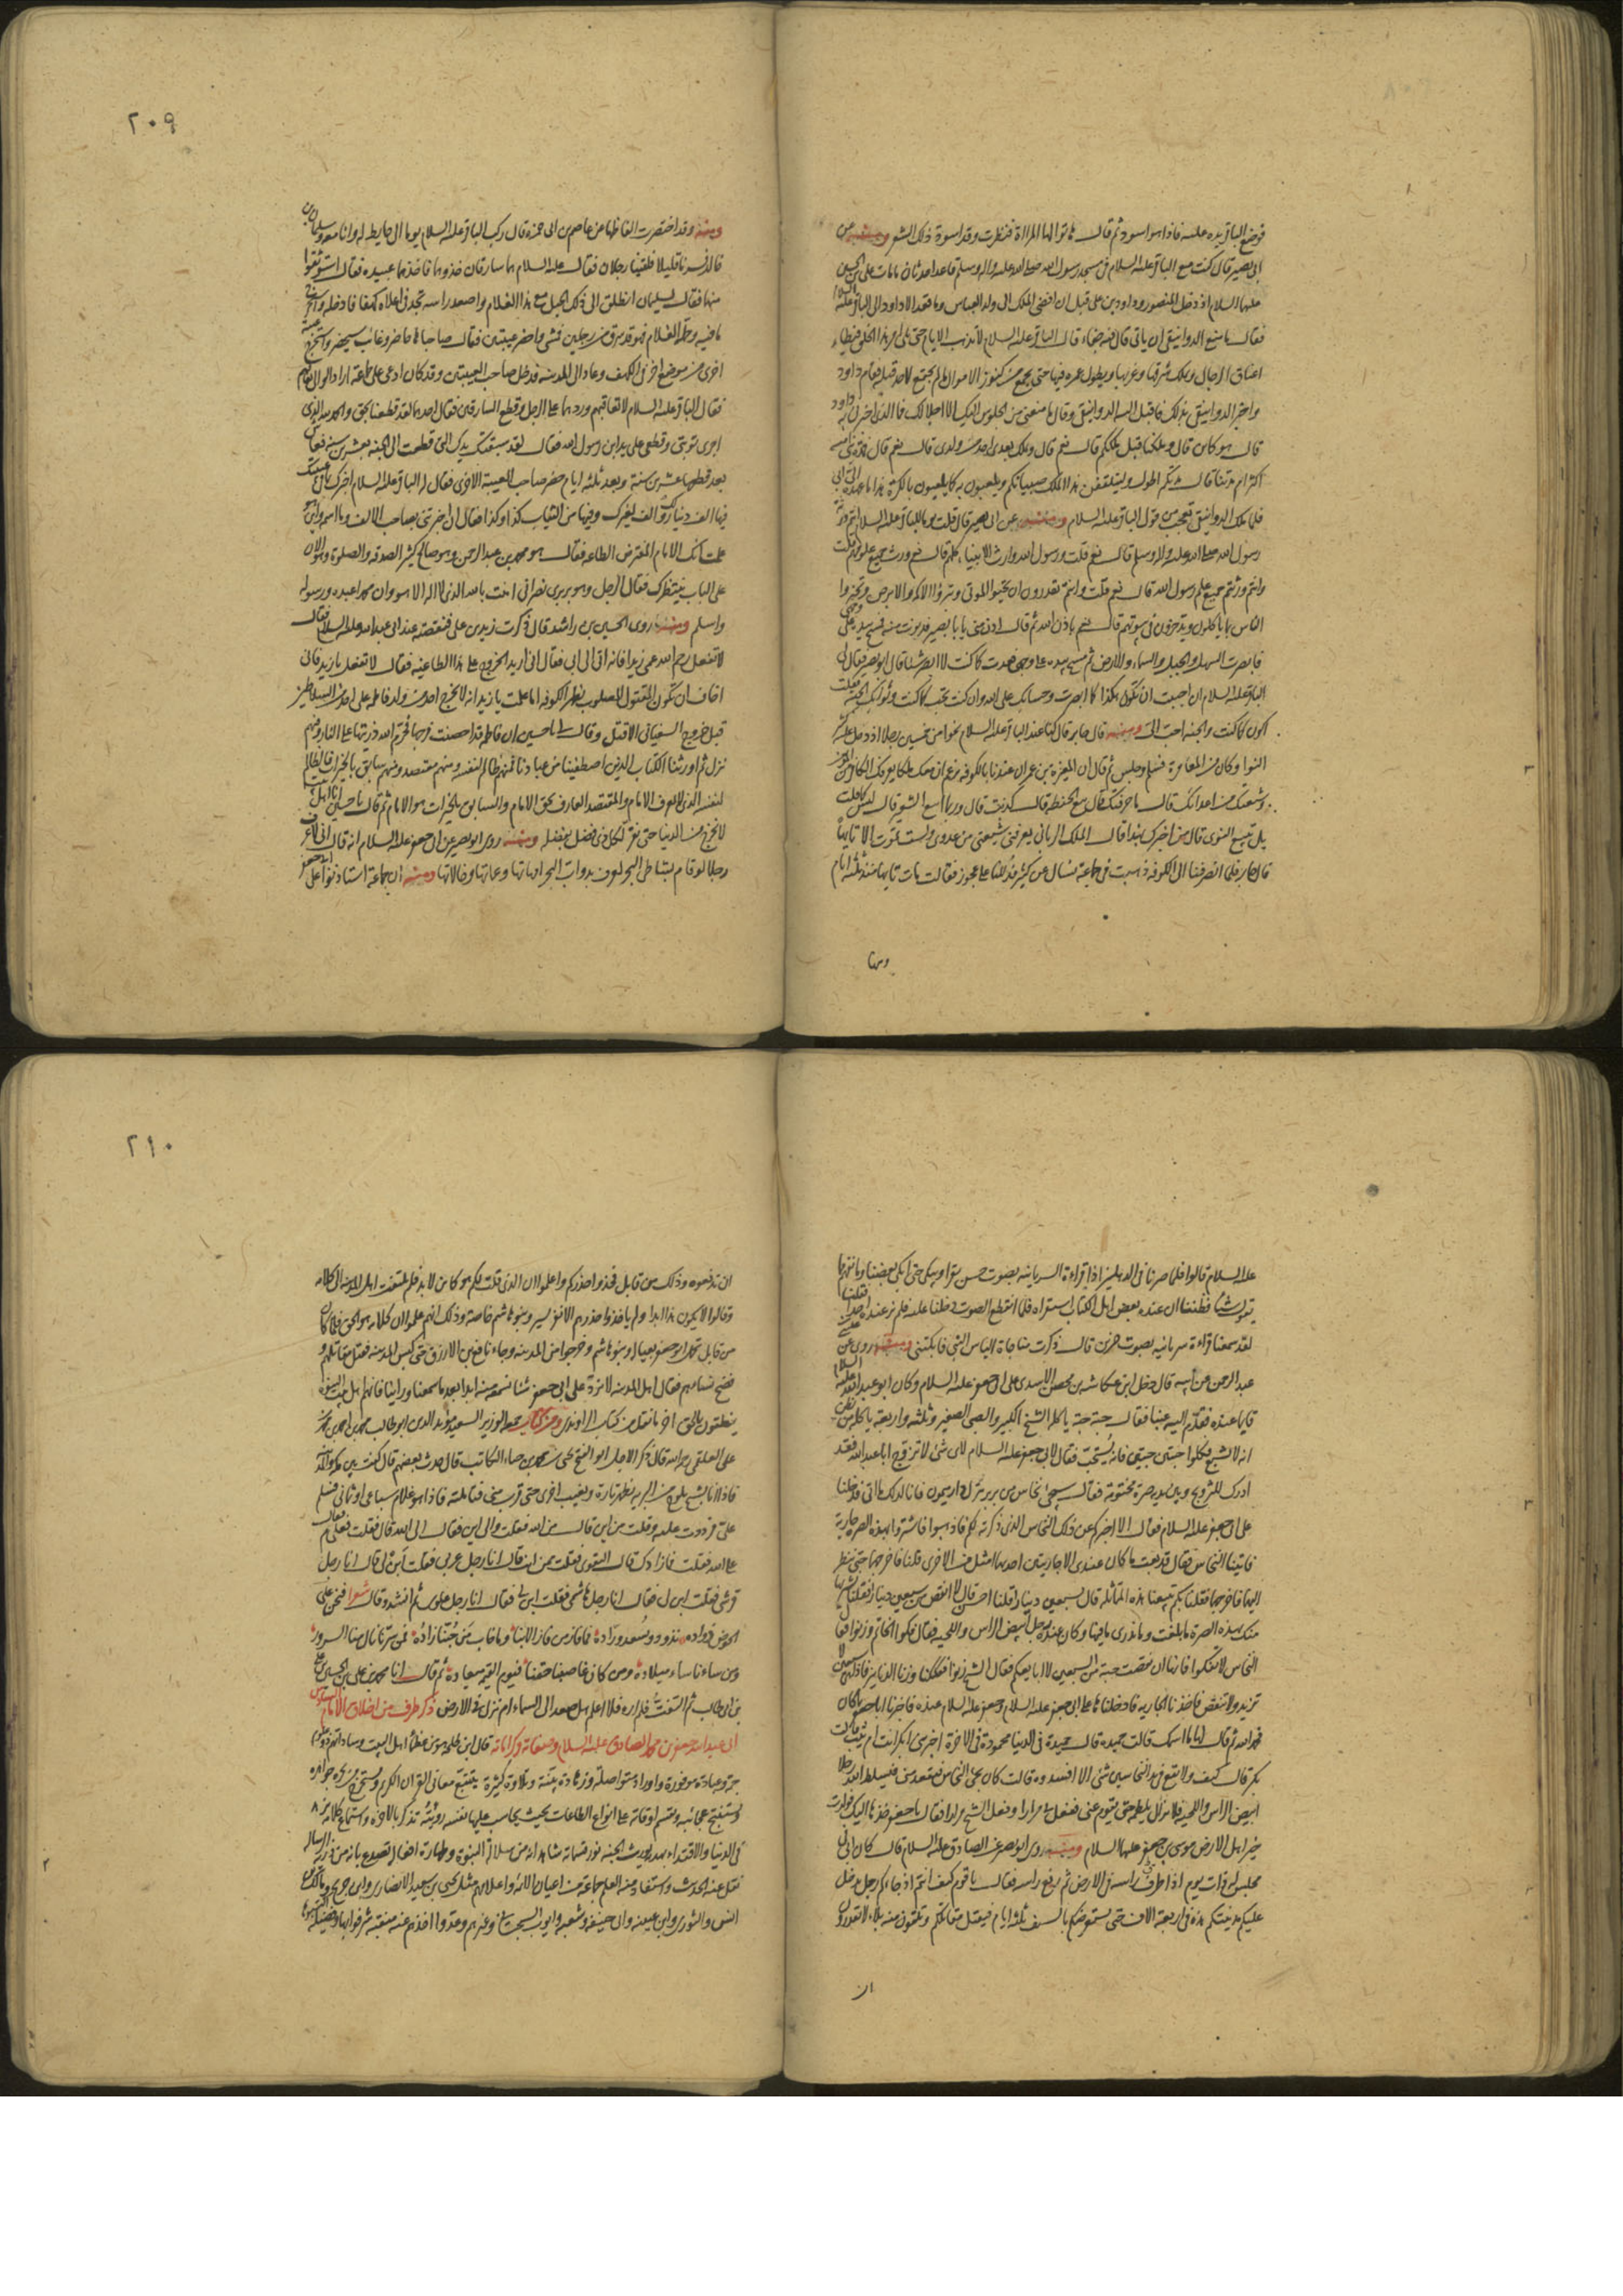 فوضع الباقر يده عليه فاذا هو اسود ثم قال هاتوا لها المراة فنظرت وقد اسود ذلك الشعر ومنه عن
ابي بصير قال كنت مع الباقر عليه السلام في مسجد رسول الله صلى الله عليه واله وسلم قاعدا حدثان ما مات علي بن الحسين
عليهما السلام اذ دخل المنصور وداود بن علي قبل ان افضى الملك الى ولد العباس وما قعد الا داود الى الباقر عليه السلام
فقال ما منع الدوانيقي ان ياتي قال فيه جفاء قال الباقر عليه السلام لا تذهب الايام حتى يلي امر هذا الخلق فيطاء
اعناق الرجال ويملك شرقها وغربها ويطول عمره فيها حتى يجمع من كنوز الاموال ما لم يجتمع لاحد قبله فقام داود
واخبر الدوانيقي بذلك فاقبل اليه الدوانيقي وقال ما منعني من الجلوس اليك الا اجلالك فما الذي اخبرني به داود
قال هو كائن قال وملكنا قبل ملككم قال نعم قال ويملك بعدي احد من ولدي قال نعم قال فمدة بني امية
اكثر ام مدتنا قال مدتكم اطول وليتلقفن هذا الملك صبيانكم ويلعبون به كما يلعبون بالكرة هذا ما عهده الي ابي
فلما ملك الدوانيقي تعجب من قول الباقر عليه السلام ومنه عن ابي بصير قال قلت يوما للباقر عليه السلام انتم ورثة
رسول الله صلى الله عليه واله وسلم قال نعم قلت ورسول الله وارث الانبياء كلهم قال نعم ورث جميع علومهم قلت
وانتم ورثتم جميع علم رسول الله قال نعم قلت وانتم تقدرون ان تحيوا الموتى وتبرؤا الاكمه والابرص وتخبروا
الناس بما ياكلون ويدخرون في بيوتهم قال نعم باذن الله ثم قال ادن مني يا با بصير فدنوت منه فمسح يده على وجهي
فابصرت السهل والجبل والسماء والارض ثم مسح يده على وجهي فعدت كما كنت لا ابصر شيئا قال ابو بصير فقال لي
الباقر عليه السلام ان احببت ان تكون هكذا كما ابصرت وحسابك على الله وان كنت تحب كما كنت وثوابك الجنة فقلت
اكون كما كنت والجنة احب الي ومنه قال جابر قال كنا عند الباقر عليه السلام نحوا من خمسين رجلا اذ دخل عليه كثير
النوا وكان من المغامرة فسلم وجلس ثم قال ان المغيرة بن عمران عندنا بالكوفة يزعم ان معك ملكا يعرفك الكافر من المؤمن
وشيعتك من اعدائك قال ما حرفتك قال بيع الحنطة قال كذبت قال وربما ابيع الشعير قال ليس كما قلت
بل تبيع النوى قال من اخبرك بهذا قال الملك الرباني يعرفني شيعتي من عدوي ولست تموت الا تايها
قال جابر فلما انصرفنا الى الكوفة ذهبت في جماعة نسال عن كثير فدللنا على عجوز فقالت مات تايها منذ ثلثة ايام
ومنها
٢٠٩
ومنه وقد اختصرت الفاظها عن عاصم بن ابي حمزة قال ركب الباقر عليه السلام يوما الى حايط له وانا معه وسليمان بن
خالد فسرنا قليلا فلقينا رجلان فقال عليه السلام هما سارقان خذوهما فاخذهما عبيده فقال استوثقوا
منهما فقال لسليمان انطلق الى ذلك الجبل مع هذا الغلام واصعد راسه تجد في اعلاه كهفا فادخله واستخرج
ما فيه وحمله الغلام فهو قد سرق من رجلين فمشى واحضر عيبتين فقال صاحباها حاضر وغائب سيحضر واستخرج عيبة
اخرى من موضع اخر في الكهف وعاد الى المدينة فدخل صاحب العيبتين وقد كان ادعى على جماعة اراد الوالي يعاقبهم
فقال الباقر عليه السلام لا تعاقبهم وردهما على الرجل وقطع السارقين فقال احدهما لقد قطعنا بحق والحمد لله الذي
اجرى توبتي وقطعي على يد ابن رسول الله فقال لقد سبقتك يدك التي قطعت الى الجنة بعشرين سنة فعاش
بعد قطعها عشرين سنة وبعد ثلثة ايام حضر صاحب العيبة الاخرى فقال له الباقر عليه السلام اخبرك بما في عيبتك
فيها الف دينار لك والف لغيرك وفيها من الثياب كذا وكذا فقال ان اخبرتني بصاحب الالف وما اسمه واين هو
علمت انك الامام المفترض الطاعة فقال هو محمد بن عبد الرحمن وهو صالح كثير الصدقة والصلوة وهو الان
على الباب ينتظرك فقال الرجل وهو بربري نصراني امنت بالله الذي لا اله الا هو وان محمدا عبده ورسوله
واسلم ومنه روى الحسين بن راشد قال ذكرت زيد بن علي فتنقصته عند ابي عبد الله عليه السلام فقال
لا تفعل رحم الله عمي زيدا فانه اتى الى ابي فقال اني اريد الخروج على هذا الطاغية فقال لا تفعل يا زيد فاني
اخاف ان تكون المقتول المصلوب بظهر الكوفة اما علمت يا زيد انه لا يخرج احد من ولد فاطمة على احد من السلاطين
قبل خروج السفياني الا قتل وقال لي يا حسين ان فاطمة قد احصنت فرجها فحرم الله ذريتها على النار وفيهم
نزل ثم اورثنا الكتاب الذين اصطفينا من عبادنا فمنهم ظالم لنفسه ومنهم مقتصد ومنهم سابق بالخيرات فالظالم
لنفسه الذي لا يعرف الامام والمقتصد العارف بحق الامام والسابق بالخيرات هو الامام ثم قال يا حسين انا اهل بيت
لا نخرج من الدنيا حتى نقر لكل ذي فضل بفضله ومنه روى ابو بصير عن ابي جعفر عليه السلام انه قال اني لاعرف
رجلا لو قام بشاطئ البحر لعرف بدواب البحر امهاتها وعماتها وخالاتها ومنه ان جماعة استاذنوا على ابي جعفر
عليه السلام قالوا فلما صرنا في الدهليز اذا قراءة السريانية بصوت حسن يقرا ويبكي حتى ابكى بعضنا وما نفهم ما
يقول شيئا فظننا ان عنده بعض اهل الكتاب استقراه فلما انقطع الصوت دخلنا عليه فلم نر عنده احدا فقلنا
لقد سمعنا قراءة سريانية بصوت حزين قال ذكرت مناجاة الياس النبي فابكتني ومنه روى عن عيسى بن
عبد الرحمن عن ابيه قال دخل ابن عكاشة بن محصن الاسدي على ابي جعفر عليه السلام وكان ابو عبد الله عليه السلام
قايما عنده فقدم اليه عنبا فقال حبة حبة ياكله الشيخ الكبير والصبي الصغير وثلثة واربعة ياكله من يظن
انه لا يشبع فكلوا حبتين حبتين فانه يستحب فقال لابي جعفر عليه السلام لاي شئ لا تزوج ابا عبد الله فقد
ادرك للتزويج وبين يديه صرة مختومة فقال سيجئ نخاس من بربر ينزل دار ميمون فاتى لذلك ما اتى فدخلنا
على ابي جعفر عليه السلام فقال الا اخبركم عن ذلك النخاس الذي ذكرته لكم فاذهبوا فاشتروا بهذه الصرة جارية
فاتينا النخاس فقال قد بعت ما كان عندي الا جاريتين احدهما امثل من الاخرى قلنا فاخرجهما حتى ننظر
اليهما فاخرجهما فقلنا بكم تبيعنا هذه المتماثلة قال بسبعين دينارا قلنا احسن قال لا انقص من سبعين دينارا فقلنا نشتريها
منك بهذه الصرة ما بلغت وما ندري ما فيها وكان عنده رجل ابيض الراس واللحية فقال فكوا الخاتم وزنوا فقال
النخاس لا تفكوا فانها ان نقصت حبة من السبعين لا ابايعكم فقال الشيخ زنوا ففككنا ووزنا الدنانير فاذا هي سبعين لا
تزيد ولا تنقص فاخذنا الجارية فادخلناها على ابي جعفر عليه السلام وجعفر عليه السلام عنده فاخبرنا ابا جعفر بما كان
فحمد الله ثم قال لها ما اسمك قالت حميدة قال حميدة في الدنيا محمودة في الاخرة اخبريني ابكر انت ام ثيب قالت
بكر قال كيف ولا يقع في يد النخاسين شئ الا افسدوه قالت كان يجئ النخاس فيقعد مني فيسلط الله رجلا
ابيض الراس واللحية فلا يزال يلطمه حتى يقوم عني ففعل بي مرارا وفعل الشيخ مرارا فقال يا جعفر خذها اليك فولدت
خير اهل الارض موسى بن جعفر عليهما السلام ومنه روى ابو بصير عن الصادق عليه السلام قال كان ابي في
مجلس له ذات يوم اذ اطرق راسه في الارض ثم رفع راسه فقال يا قوم كيف انتم اذ جاءكم رجل يدخل
عليكم مدينتكم هذه في اربعة الاف حتى يستعرضكم بالسيف ثلثة ايام فيقتل مقاتلتكم وتلقون منه بلاء لا تقدرون
ان
٢١٠
ان تدفعوه وذلك من قابل فخذوا حذركم واعلموا ان الذي قلت لكم هو كائن لابد فلم يلتفت اهل المدينة الى كلامه
وقالوا لا يكون هذا ابدا ولم ياخذوا حذرهم الا نفر يسير وبنو هاشم خاصة وذلك انهم علموا ان كلامه هو الحق فلما كان
من قابل تحمل ابو جعفر بعياله وبنو هاشم وخرجوا من المدينة وجاء نافع بن الازرق حتى كبس المدينة فقتل مقاتلتهم و
فضح نساءهم فقال اهل المدينة لا نرد على ابي جعفر شيئا نسمعه منه ابدا بعد ما سمعنا وراينا فانهم اهل بيت النبوة
ينطقون بالحق اخر ما نقل من كتاب الراوندي ومن كتاب جمعه الوزير السعيد مؤيد الدين ابو طالب محمد بن احمد بن محمد بن
علي العلقمي رحمه الله قال ذكر الاجل ابو الفتح يحيى بن محمد بن حياء الكاتب قال حدث بعضهم قال كنت بين مكة والمدينة
فاذا انا بشبح يلوح من البرية يظهر تارة ويغيب اخرى حتى قرب مني فتاملته فاذا هو غلام سباعي او ثماني فسلم
علي فرددت عليه وقلت من اين قال من الله فقلت والى اين فقال الى الله قال فقلت فعلى م فقال
على الله فقلت فما زادك قال التقوى فقلت ممن انت قال انا رجل عربي فقلت ابن لي قال انا رجل
قرشي فقلت ابن لي فقال انا رجل هاشمي فقلت ابن لي فقال انا رجل علوي ثم انشد وقال شعرا فنحن على
الحوض ذواده نذود ويسعد وراده فما فاز من فاز الا بنا وما خاب من حبنا زاده فمن سرنا نال منا السرور
ومن ساءنا ساء ميلاده ومن كان غاصبنا حقنا فيوم القيمة ميعاده ثم قال انا محمد بن علي بن الحسين بن علي
بن ابي طالب ثم التفت فلم اره فلا اعلم هل صعد الى السماء ام نزل في الارض ذكر طرف من اخلاق الامام السادس
ابي عبد الله جعفر بن محمد الصادق عليه السلام وصفاته وكراماته قال ابن طلحة هو من عظماء اهل البيت وساداتهم ذو علوم
جمة وعبادة موفورة واوراد متواصلة وزهادة بينة وتلاوة كثيرة يتتبع معاني القران الكريم ويستخرج من بحره جواهره
ويستنتج عجائبه ويقسم اوقاته على انواع الطاعات بحيث يحاسب عليها نفسه رؤيته تذكر بالاخرة واستماع كلامه يزهد
في الدنيا والاقتداء بهديه يورث الجنة نور قسماته شاهد انه من سلالة النبوة وطهارة افعاله تصدع بانه من ذرية الرسالة
نقل عنه الحديث واستفاد منه العلم جماعة من اعيان الائمة واعلامهم مثل يحيى بن سعيد الانصاري وابن جريج ومالك بن
انس والثوري وابن عيينة وابي حنيفة وشعبة وايوب السجستاني وغيرهم وعدوا اخذهم عنه منقبة شرفوا بها وفضيلة اكتسبوها